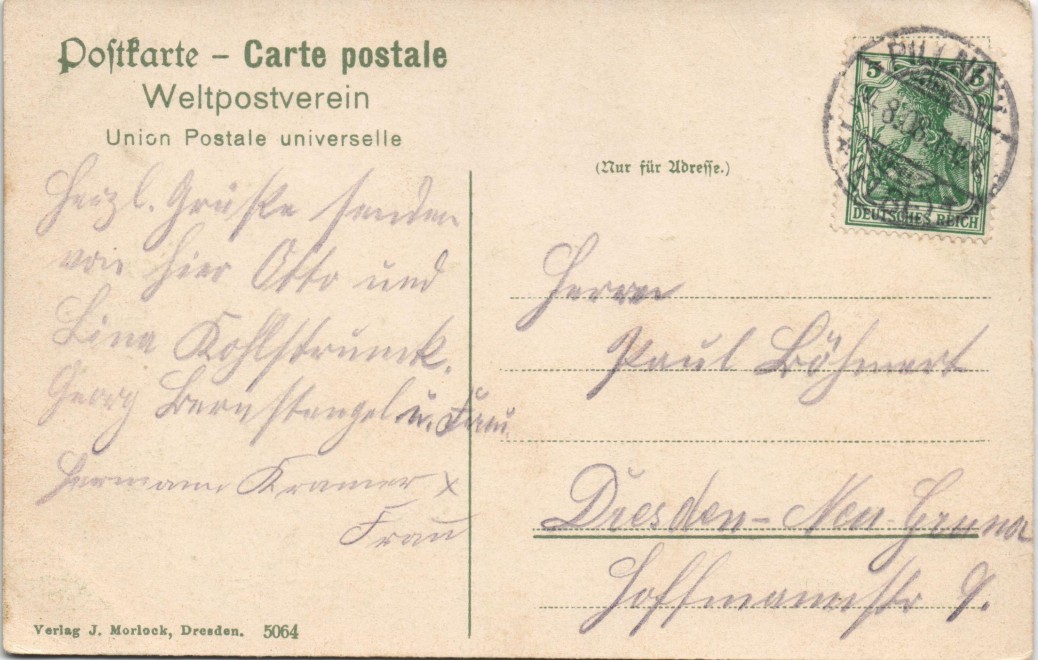 Postkarte – Carte postale
Weltpostverein
Union Postale universelle
(Nur für Adresse.)
5 5
DEUTSCHES REICH
8.08.
Herzl. Grüße senden
von hier Otto und
Lina Kohlstrunck.
Georg Bernstengel u. Frau
Hermann Kramer x
Frau
Herrn
Paul Böhmert
Dresden-Neu-Gruna
Hoffmannstr 9.
Verlag J. Morlock, Dresden. 5064